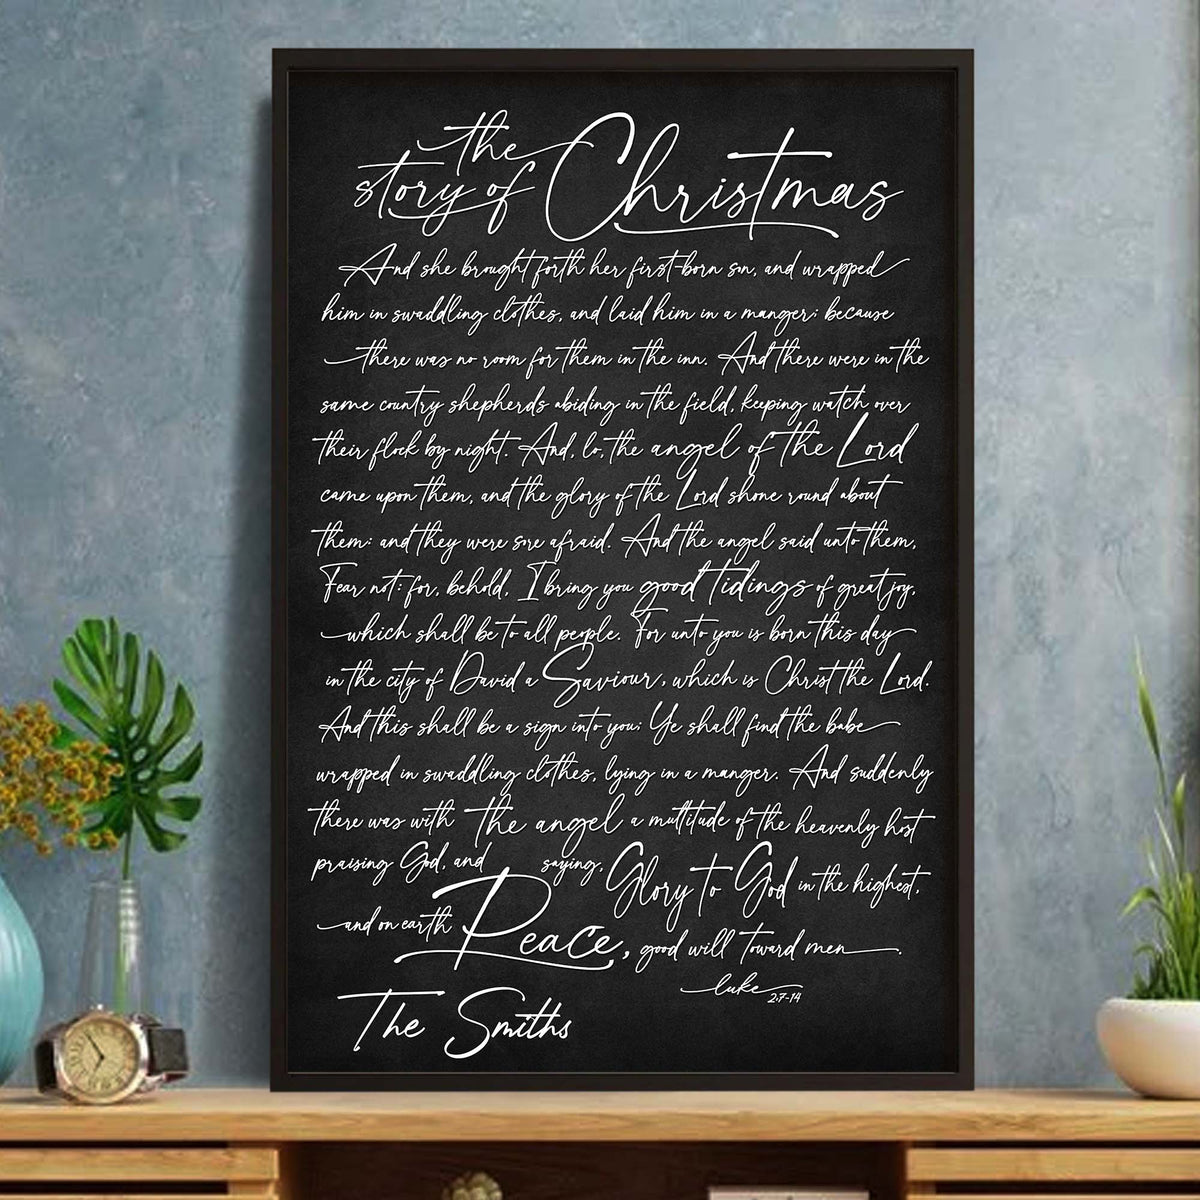 the
story of Christmas
And she brought forth her first-born son, and wrapped
him in swaddling clothes, and laid him in a manger; because
there was no room for them in the inn. And there were in the
same country shepherds abiding in the field, keeping watch over
their flock by night. And, lo, the angel of the Lord
came upon them, and the glory of the Lord shone round about
them: and they were sore afraid. And the angel said unto them,
Fear not: for, behold, I bring you good tidings of great joy,
which shall be to all people. For unto you is born this day
in the city of David a Saviour, which is Christ the Lord.
And this shall be a sign into you; Ye shall find the babe
wrapped in swaddling clothes, lying in a manger. And suddenly
there was with the angel a multitude of the heavenly host
praising God, and saying, Glory to God in the highest,
and on earth Peace, good will toward men.
luke 2:7-14
The Smiths